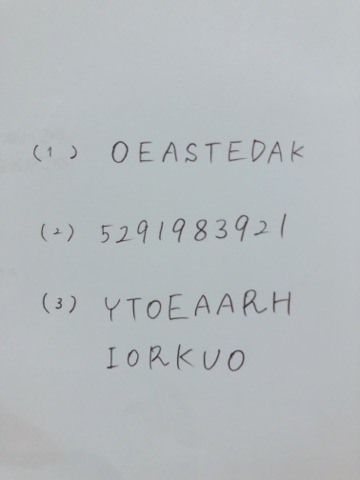 (1) OEASTEDAK
(2) 5291983921
(3) YTOEAARH
IORKUO